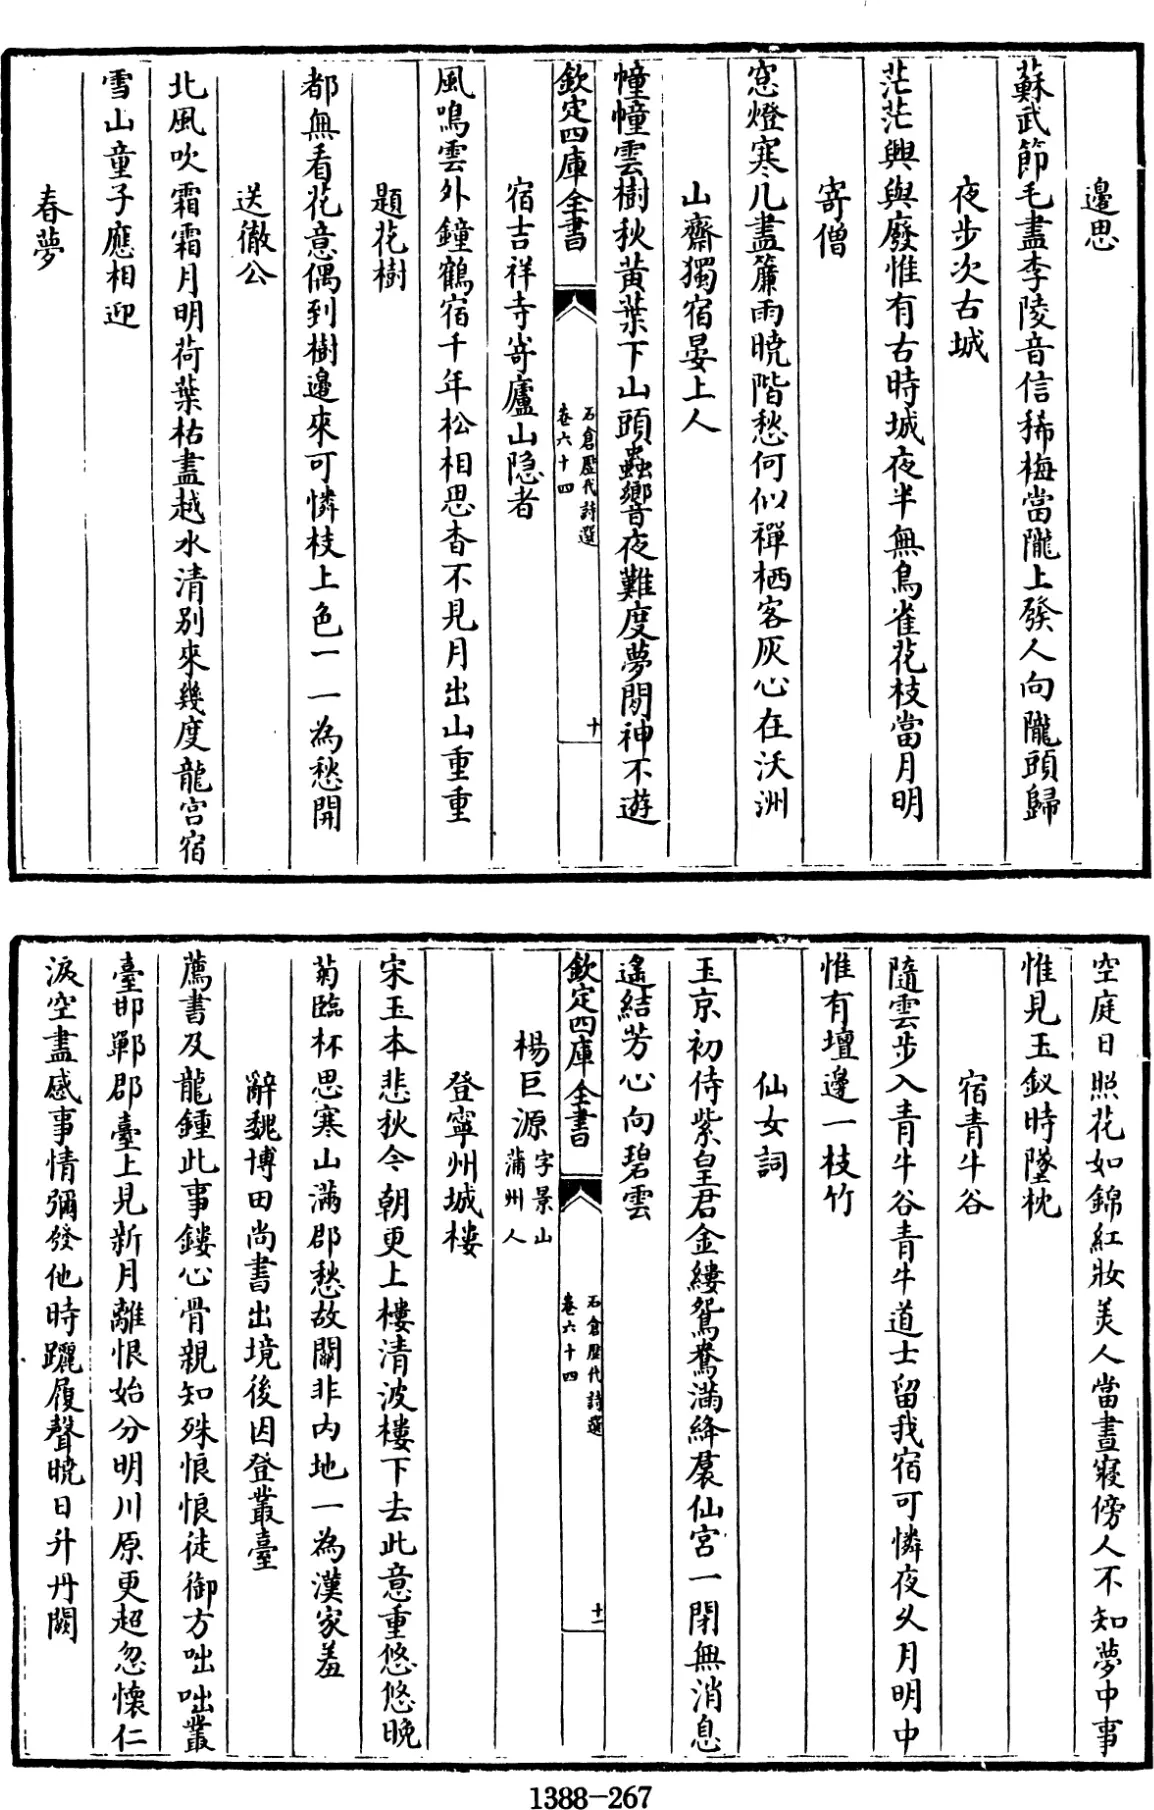 邉思
蘇武節毛盡李陵音信稀梅當隴上發人向隴頭歸
夜步次古城
茫茫興與廢惟有古時城夜半無鳥雀花枝當月明
寄僧
窓燈寒几盡簾雨曉階愁何似禪栖客灰心在沃洲
山齋獨宿晏上人
幢幢雲樹秋黄葉下山頭蟲響夜難度夢閒神不遊
欽定四庫全書
石倉歷代詩選
卷六十四
十
宿吉祥寺寄廬山隠者
風鳴雲外鐘鶴宿千年松相思杳不見月出山重重
題花樹
都無看花意偶到樹邉來可憐枝上色一一為愁開
送徹公
北風吹霜霜月明荷葉枯盡越水清别來幾度龍宫宿
雪山童子應相迎
春夢
空庭日照花如錦紅妝美人當晝寢傍人不知夢中事
惟見玉釵時墜枕
宿青牛谷
隨雲步入青牛谷青牛道士留我宿可憐夜久月明中
惟有壇邉一枝竹
仙女詞
玉京初侍紫皇君金縷鴛鴦滿絳裠仙宫一閉無消息
遙結芳心向碧雲
欽定四庫全書
石倉歷代詩選
卷六十四
十一
楊巨源字景山
蒲州人
登寧州城樓
宋玉本悲秋今朝更上樓清波樓下去此意重悠悠晩
菊臨杯思寒山滿郡愁故關非内地一為漢家羞
辭魏博田尚書出境後因登叢臺
薦書及龍鍾此事鏤心骨親知殊悢悢徒御方咄咄叢
臺邯鄲郡臺上見新月離恨始分明川原更超忽懷仁
淚空盡感事情彌發他時躧履聲曉日升丹闕
1388-267